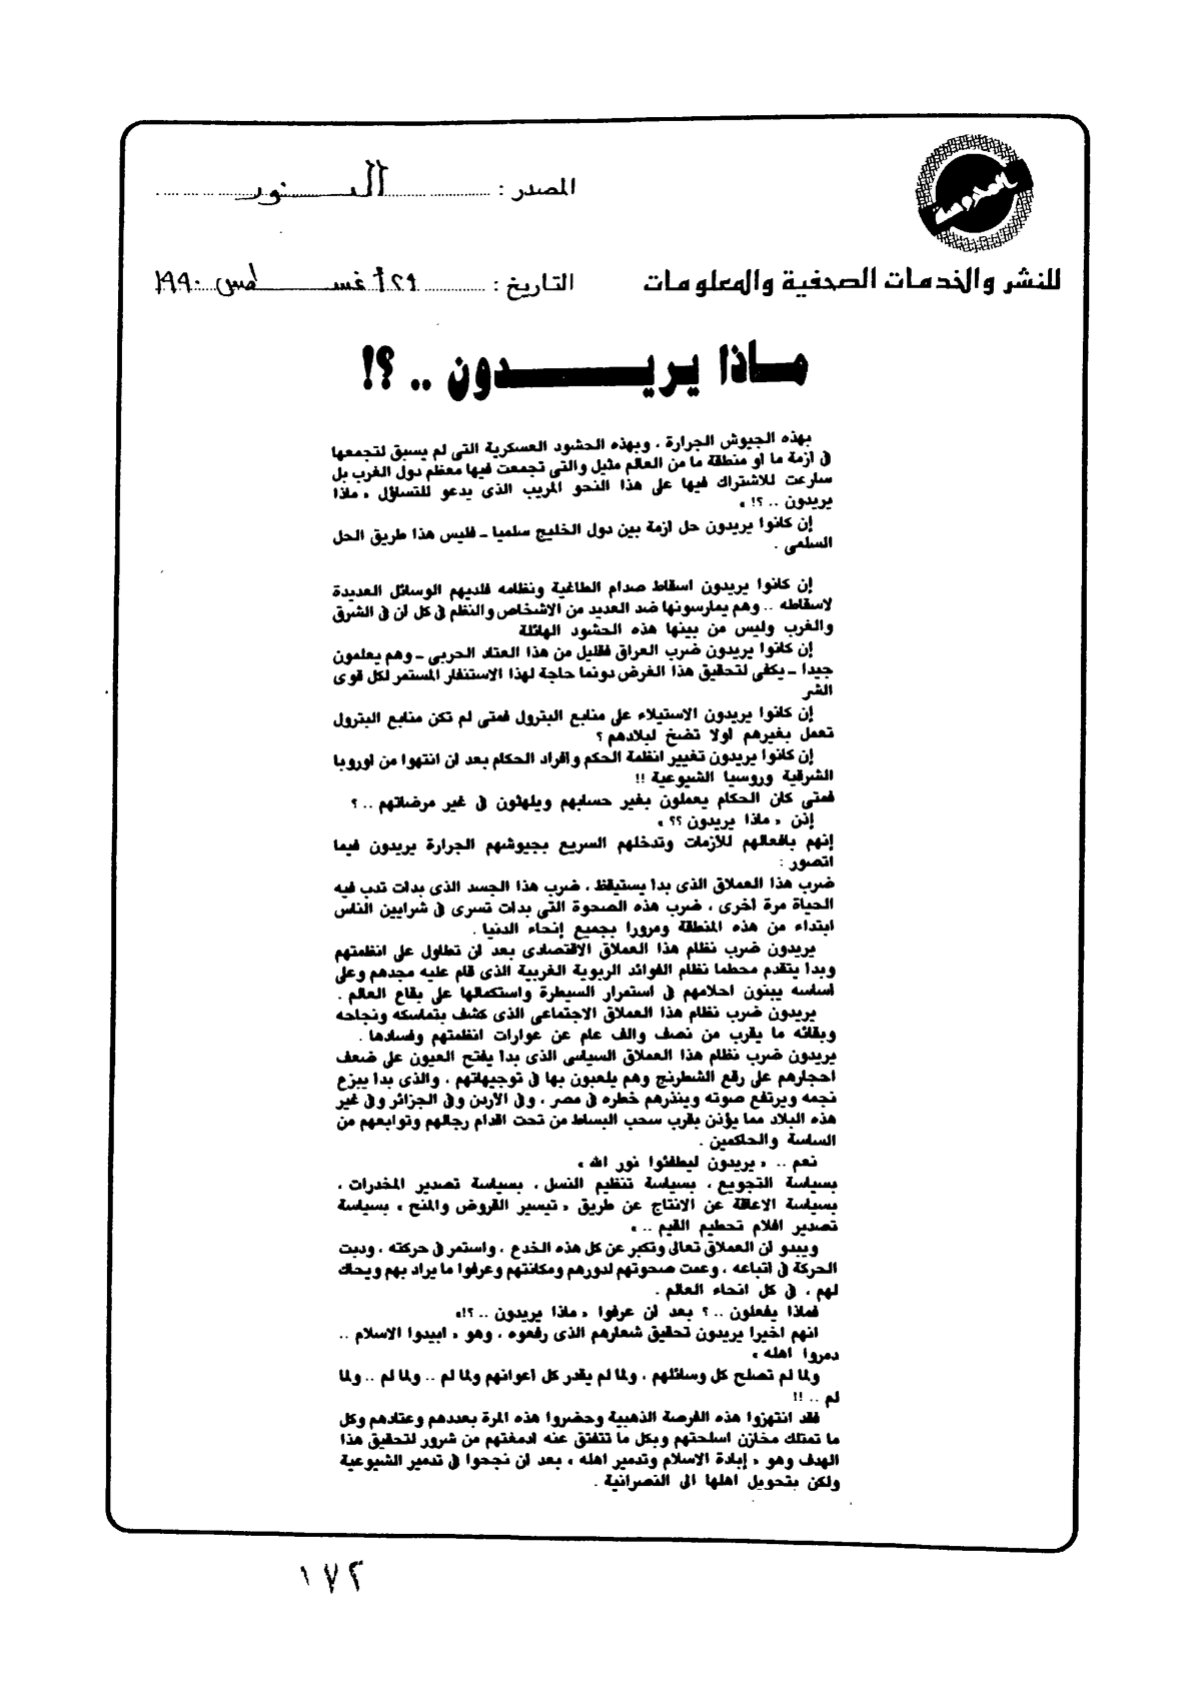 المصدر : النور
للنشر والخدمات الصحفية والمعلومات
التاريخ : ٢٩ أغسطس ١٩٩٠
ماذا يريدون .. ؟!
بهذه الجيوش الجرارة ، وبهذه الحشود العسكرية التى لم يسبق لتجمعها
فى ازمة ما او منطقة ما من العالم مثيل والتى تجمعت فيها معظم دول الغرب بل
سارعت للاشتراك فيها على هذا النحو المريب الذى يدعو للتساؤل « ماذا
يريدون .. ؟! »
إن كانوا يريدون حل ازمة بين دول الخليج سلميا ـ فليس هذا طريق الحل
السلمى .
إن كانوا يريدون اسقاط صدام الطاغية ونظامه فلديهم الوسائل العديدة
لاسقاطه .. وهم يمارسونها ضد العديد من الاشخاص والنظم فى كل أن فى الشرق
والغرب وليس من بينها هذه الحشود الهائلة
إن كانوا يريدون ضرب العراق فقليل من هذا العتاد الحربى ـ وهم يعلمون
جيدا ـ يكفى لتحقيق هذا الغرض دونما حاجة لهذا الاستنفار المستمر لكل قوى
الشر
إن كانوا يريدون الاستيلاء على منابع البترول فمتى لم تكن منابع البترول
تعمل بغيرهم اولا تضخ لبلادهم ؟
إن كانوا يريدون تغيير انظمة الحكم وافراد الحكام بعد أن انتهوا من اوروبا
الشرقية وروسيا الشيوعية !!
فمتى كان الحكام يعملون بغير حسابهم ويلهثون فى غير مرضاتهم .. ؟
إذن « ماذا يريدون ؟؟ »
إنهم بافعالهم للأزمات وتدخلهم السريع بجيوشهم الجرارة يريدون فيما
اتصور :
ضرب هذا العملاق الذى بدا يستيقظ ، ضرب هذا الجسد الذى بدات تدب فيه
الحياة مرة اخرى ، ضرب هذه الصحوة التى بدات تسرى فى شرايين الناس
ابتداء من هذه المنطقة ومرورا بجميع إنحاء الدنيا .
يريدون ضرب نظام هذا العملاق الاقتصادى بعد أن تطاول على انظمتهم
وبدا يتقدم محطما نظام الفوائد الربوية الغربية الذى قام عليه مجدهم وعلى
اساسه يبنون احلامهم فى استمرار السيطرة واستكمالها على بقاع العالم .
يريدون ضرب نظام هذا العملاق الاجتماعى الذى كشف بتماسكه ونجاحه
وبقائه ما يقرب من نصف والف عام عن عوارات انظمتهم وفسادها .
يريدون ضرب نظام هذا العملاق السياسى الذى بدا يفتح العيون على ضعف
احجارهم على رقع الشطرنج وهم يلعبون بها فى توجيهاتهم ، والذى بدا يبزغ
نجمه ويرتفع صوته وينذرهم خطره فى مصر ، وفى الأردن وفى الجزائر وفى غير
هذه البلاد مما يؤذن بقرب سحب البساط من تحت اقدام رجالهم وتوابعهم من
الساسة والحاكمين .
نعم .. « يريدون ليطفئوا نور الله »
بسياسة التجويع ، بسياسة تنظيم النسل ، بسياسة تصدير المخدرات ،
بسياسة الاعاقة عن الانتاج عن طريق « تيسير القروض والمنح » بسياسة
تصدير افلام تحطيم القيم .. »
ويبدو أن العملاق تعالى وتكبر عن كل هذه الخدع ، واستمر فى حركته ، ودبت
الحركة فى اتباعه ، وعمت صحوتهم لدورهم ومكانتهم وعرفوا ما يراد بهم ويحاك
لهم ، فى كل انحاء العالم .
فماذا يفعلون .. ؟ بعد أن عرفوا « ماذا يريدون .. ؟!»
انهم اخيرا يريدون تحقيق شعارهم الذى رفعوه ، وهو « ابيدوا الاسلام ..
دمروا اهله »
ولما لم تصلح كل وسائلهم ، ولما لم يقدر كل اعوانهم ولما لم .. ولما لم .. ولما
لم .. !!
فقد انتهزوا هذه الفرصة الذهبية وحضروا هذه المرة بعددهم وعتادهم وكل
ما تمتلك مخازن اسلحتهم وبكل ما تتفتق عنه ادمغتهم من شرور لتحقيق هذا
الهدف وهو « إبادة الاسلام وتدمير اهله » بعد أن نجحوا فى تدمير الشيوعية
ولكن بتحويل اهلها الى النصرانية .
١٧٢